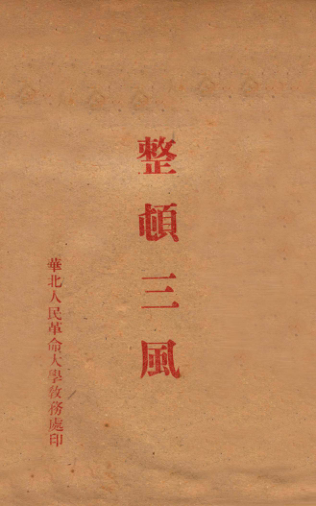 整頓三風
華北人民革命大學教務處印